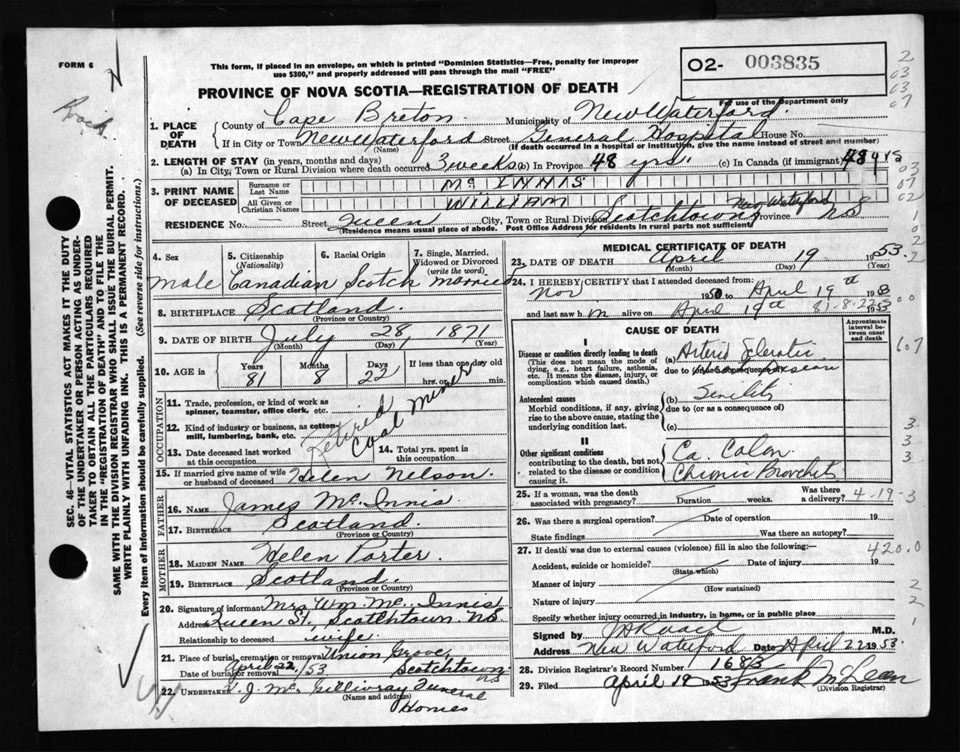 FORM 6
This form, if placed in an envelope, on which is printed "Dominion Statistics—Free, penalty for improper
use $300," and properly addressed will pass through the mail "FREE"
O2- 003835
2
03
03
07
Rock.
PROVINCE OF NOVA SCOTIA—REGISTRATION OF DEATH
For use of the Department only
1. PLACE OF DEATH
County of Cape Breton Municipality of New Waterford.
If in City or Town New Waterford Street General Hospital House No.
(Name) (If death occurred in a hospital or institution, give the name instead of street and number)
2. LENGTH OF STAY (in years, months and days)
(a) In City, Town or Rural Division where death occurred 3 weeks (b) In Province 48 yrs (c) In Canada (if immigrant) 48 yrs
3. PRINT NAME OF DECEASED
Surname or Last Name Mc INNIS
All Given or Christian Names WILLIAM
RESIDENCE No. — Street Queen City, Town or Rural Division Scotchtown New Waterford Province NS
(Residence means usual place of abode. Post Office Address for residents in rural parts not sufficient)
03
07
02
1
0
2
2
SEC. 46—VITAL STATISTICS ACT MAKES IT THE DUTY
OF THE UNDERTAKER OR PERSON ACTING AS UNDER-
TAKER TO OBTAIN ALL THE PARTICULARS REQUIRED
IN THE "REGISTRATION OF DEATH" AND TO FILE THE
SAME WITH THE DIVISION REGISTRAR WHO SHALL ISSUE THE BURIAL PERMIT.
WRITE PLAINLY WITH UNFADING INK. THIS IS A PERMANENT RECORD.
Every item of information should be carefully supplied. (See reverse side for instructions.)
4. Sex
male
5. Citizenship
(Nationality)
Canadian
6. Racial Origin
Scotch
7. Single, Married,
Widowed or Divorced
(write the word)
married
8. BIRTHPLACE Scotland
(Province or Country)
9. DATE OF BIRTH July 28, 1871
(Month) (Day) (Year)
10. AGE in
Years Months Days If less than one day old
81 8 22 hrs. or min.
OCCUPATION
11. Trade, profession, or kind of work as
spinner, teamster, office clerk, etc.
12. Kind of industry or business, as cotton-
mill, lumbering, bank, etc.
Retired Coal Miner
13. Date deceased last worked
at this occupation
14. Total yrs. spent in
this occupation
15. If married give name of wife
or husband of deceased Helen Nelson.
FATHER
16. NAME James Mc. Innis.
17. BIRTHPLACE Scotland.
(Province or Country)
MOTHER
18. MAIDEN NAME Helen Porter.
19. BIRTHPLACE Scotland.
(Province or Country)
20. Signature of informant Mrs Wm Mc. Innis
Address Queen St., Scotchtown. NS
Relationship to deceased wife.
21. Place of burial, cremation or removal Union Grove,
Date of burial or removal April 22, /53 Scotchtown NS
22. UNDERTAKER J. Mc Gillivray Funeral Homes
(Name and address)
MEDICAL CERTIFICATE OF DEATH
23. DATE OF DEATH April 19 1953.
(Month) (Day) (Year)
24. I HEREBY CERTIFY that I attended deceased from:
Nov 1950 to April 19th 1953
and last saw him alive on April 19th 1953
81-8-22
00
CAUSE OF DEATH
Approximate
interval be-
tween onset
and death
I
Disease or condition directly leading to death
(This does not mean the mode of
dying, e.g., heart failure, asthenia,
etc. It means the disease, injury, or
complication which caused death.)
(a) Arterio Sclerotic
due to (or as a consequence of)
607
Antecedent causes
Morbid conditions, if any, giving
rise to the above cause, stating the
underlying condition last.
(b) Senility
due to (or as a consequence of)
(c)
II
Other significant conditions
contributing to the death, but not
related to the disease or condition
causing it.
Ca. Colon.
Chronic Bronchitis
3
3
3
25. If a woman, was the death
associated with pregnancy? Duration weeks. Was there
a delivery?
4-19-3
26. Was there a surgical operation? Date of operation 19
State findings Was there an autopsy?
27. If death was due to external causes (violence) fill in also the following:—
420.0
Accident, suicide or homicide? Date of injury 19
(State which)
Manner of injury
(How sustained)
Nature of injury
2
2
1
Specify whether injury occurred in industry, in home, or in public place
Signed by M.D.
Address New Waterford Date April 22 1953
28. Division Registrar's Record Number 1683
29. Filed April 19 1953 Frank McLean
(Division Registrar)